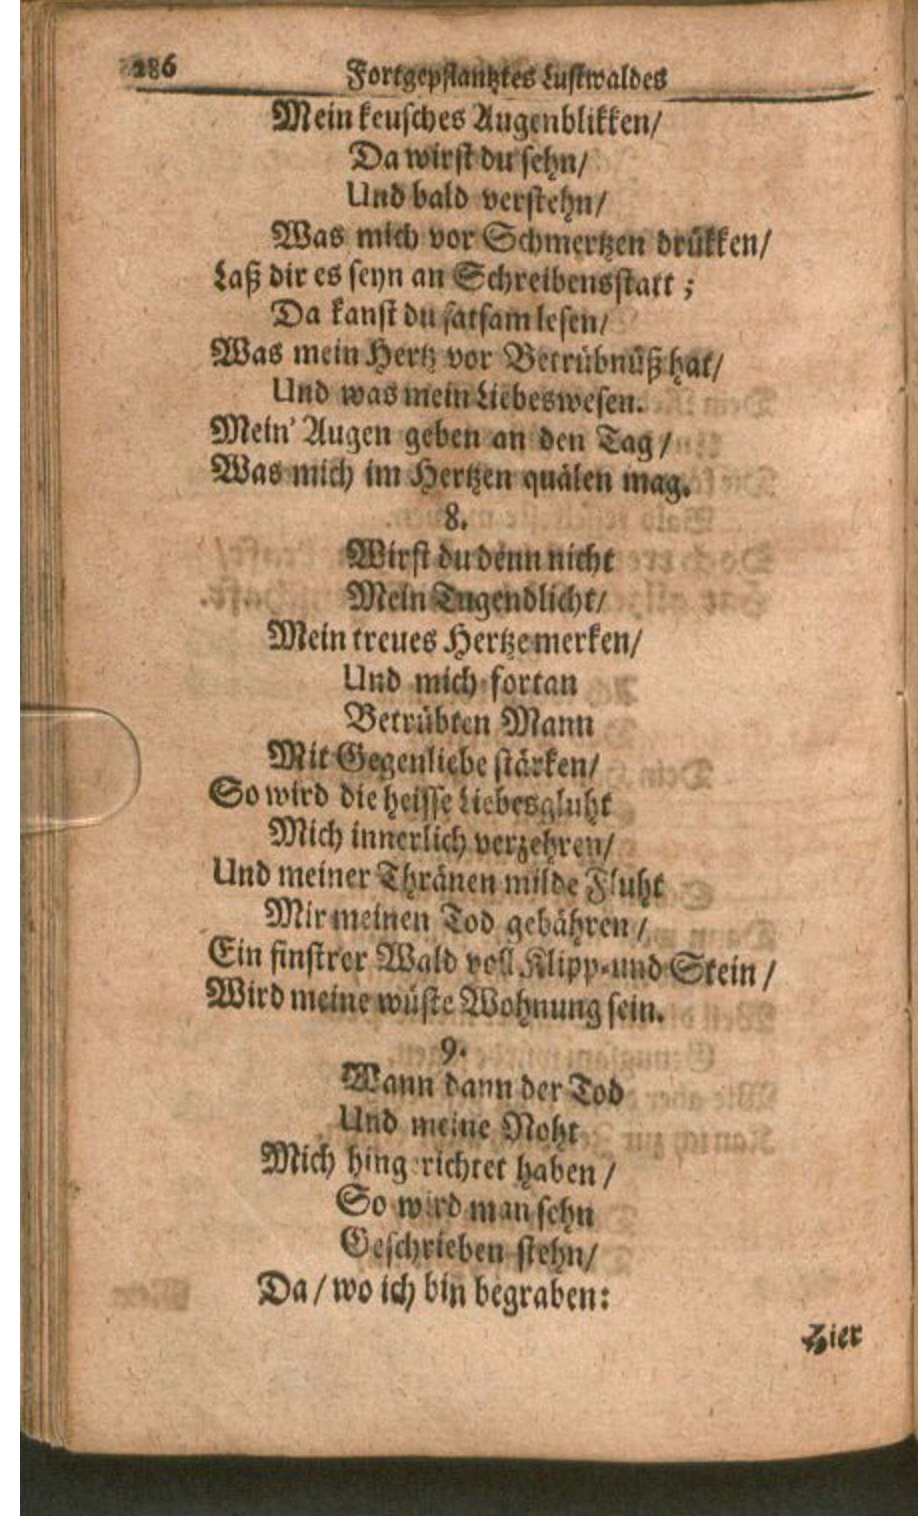 286
Fortgepflantztes Lustwaldes
Mein keusches Augenblikken/
Da wirst du sehn/
Und bald verstehn/
Was mich vor Schmertzen drükken/
Laß dir es seyn an Schreibensstatt;
Da kanst du satsam lesen/
Was mein Hertz vor Betrübnüß hat/
Und was mein Liebeswesen.
Mein' Augen geben an den Tag/
Was mich im Hertzen quälen mag.
8.
Wirst du denn nicht
Mein Tugendlicht/
Mein treues Hertze merken/
Und mich fortan
Betrübten Mann
Mit Gegenliebe stärken/
So wird die heisse Liebesgluht
Mich innerlich verzehren/
Und meiner Thränen milde Fluht
Mir meinen Tod gebähren/
Ein finstrer Wald voll Klipp-und Stein/
Wird meine wüste Wohnung sein.
9.
Wann dann der Tod
Und meine Noht
Mich hingerichtet haben/
So wird man sehn
Geschrieben stehn/
Da/ wo ich bin begraben:
Hier